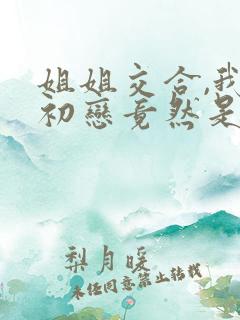 姐姐交合,我
初戀竟然是
梨月暖
未任同意禁止转载